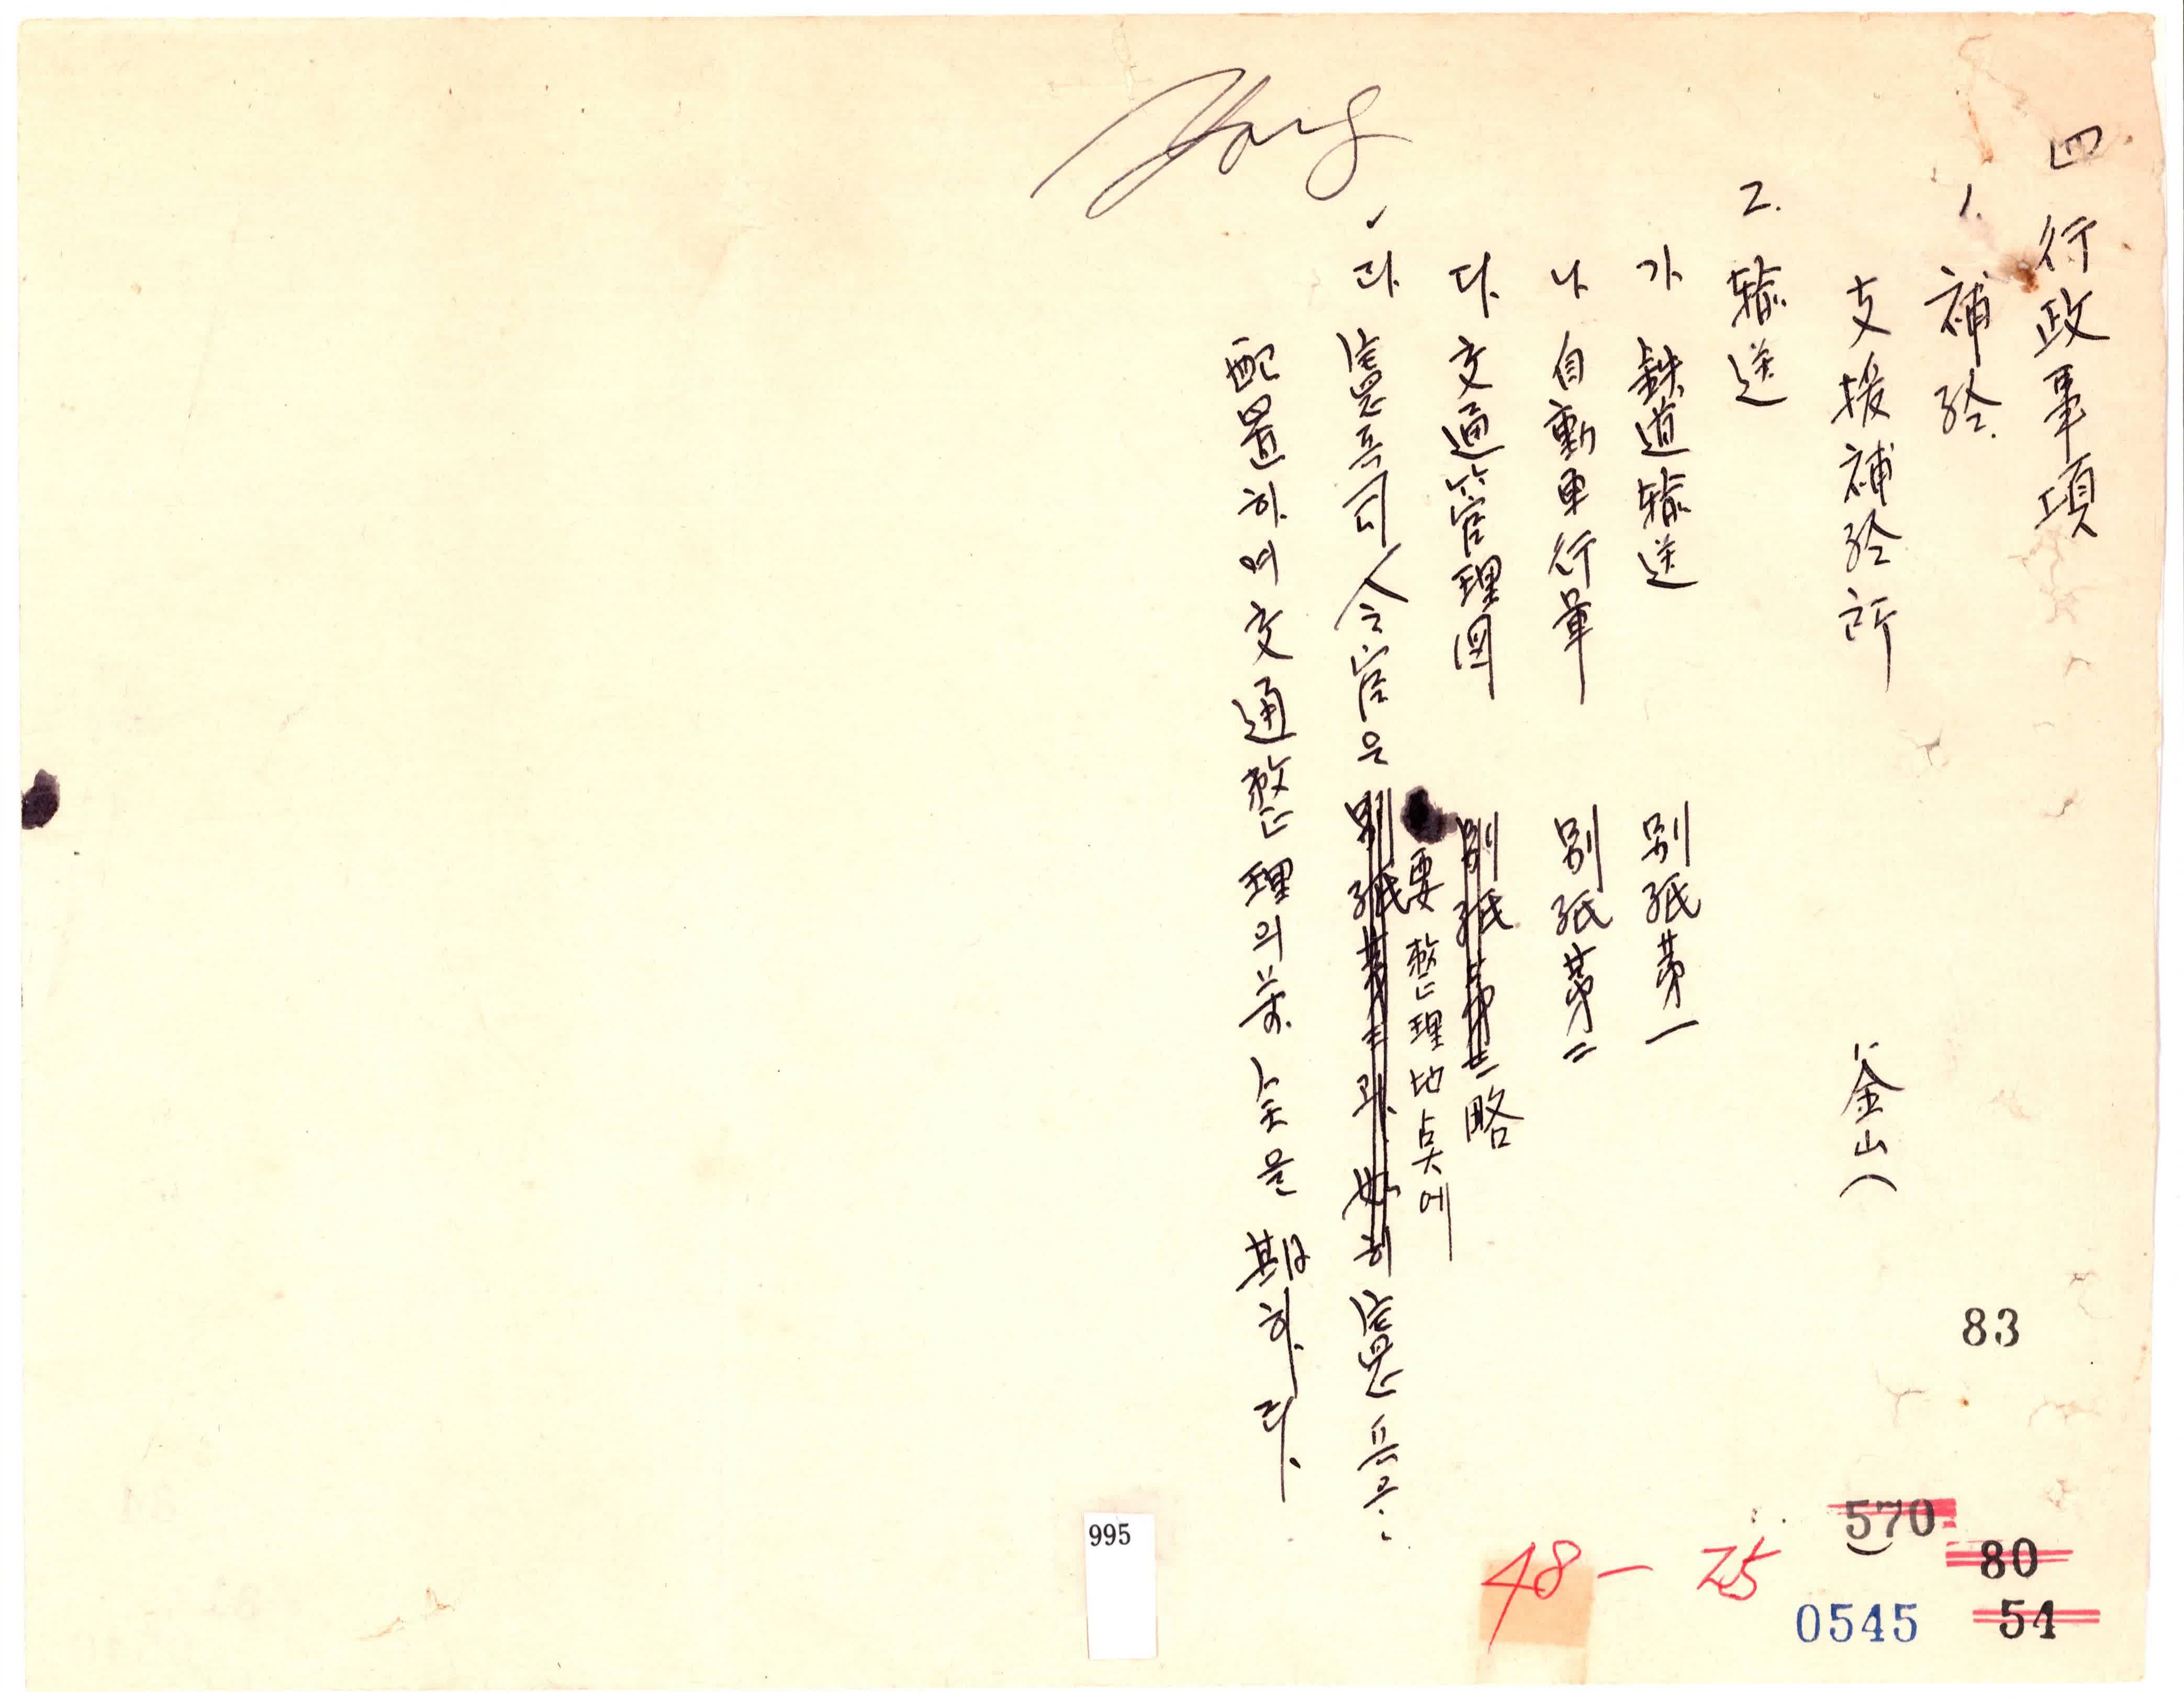 四 行政事項
1. 補給
支援補給所 釜山(
2. 輸送
가. 鉄道輸送 別紙第一
나. 自動車行軍 別紙第二
다. 交通管理図 別紙第三 略
라. 憲兵司令官은 別紙第三과 如히 憲兵을
要整理地点에
配置하여 交通整理의 萬全을 期하라.
83
570
80
48-25
0545
54
995